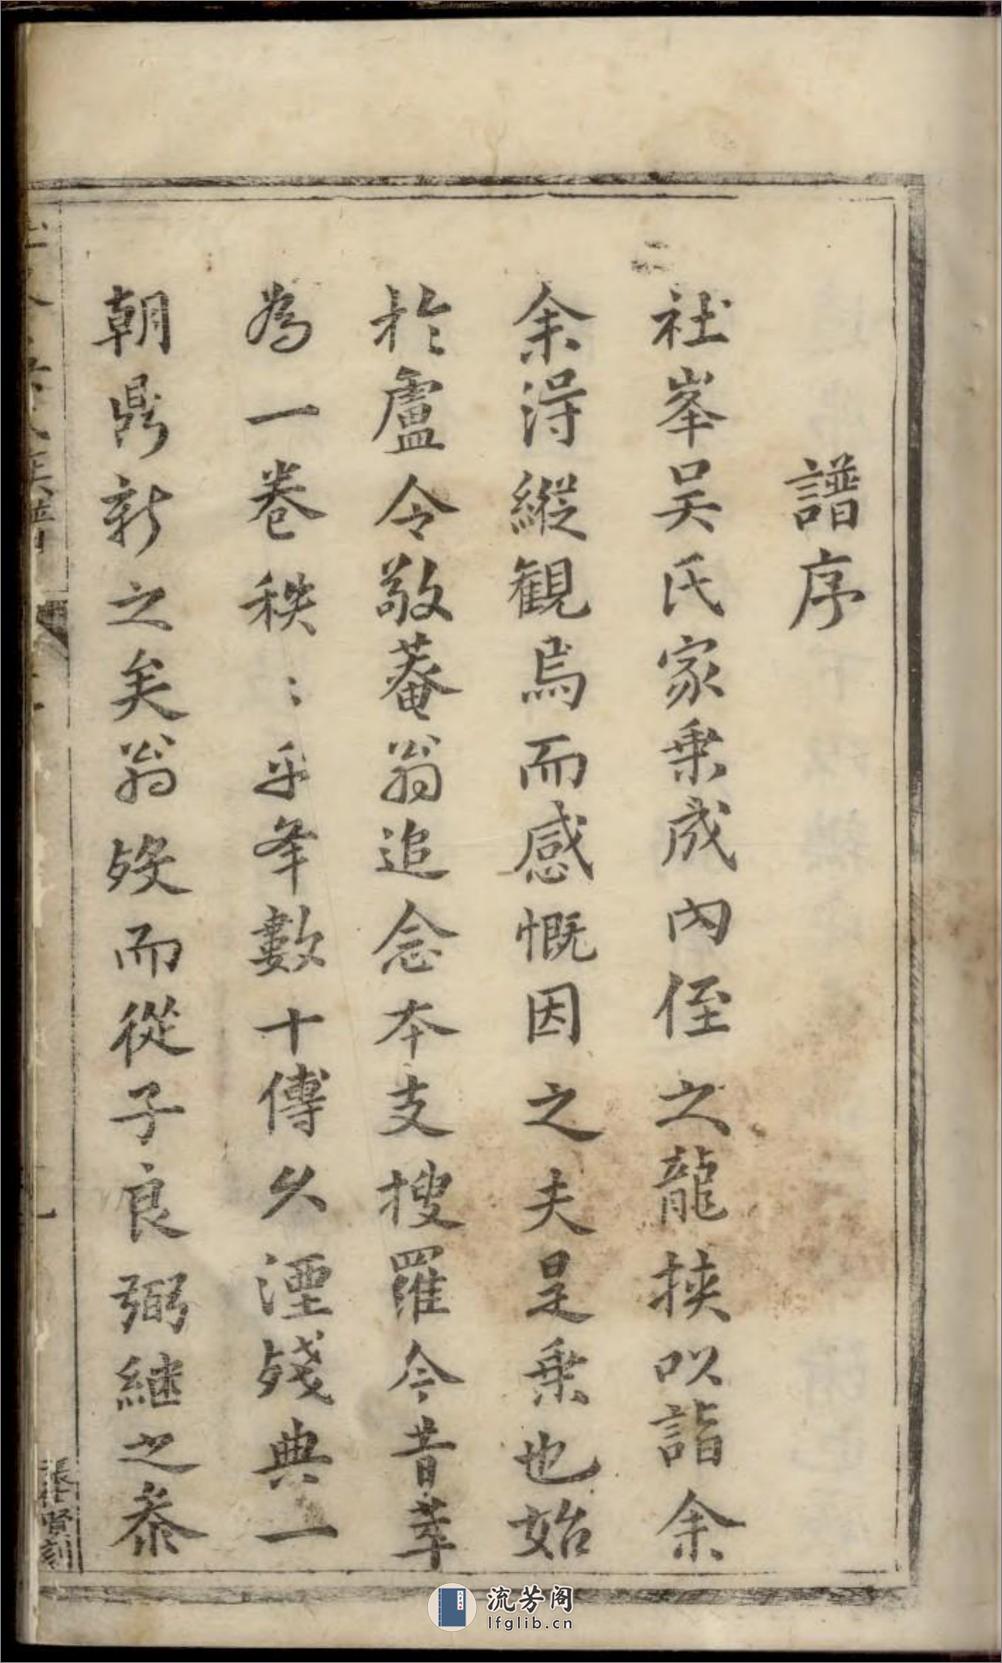 譜序
社峯吴氏家乗成内侄之龍挟以詣余
余淂縱觀焉而感慨因之夫是乗也始
於盧令敬菴翁追念本支搜羅今昔萃
為一卷秩〻乎年數十傳久湮殘典一
朝鼎新之矣翁歿而從子良弼継之叅
賢刻
流芳阁
lfglib.cn